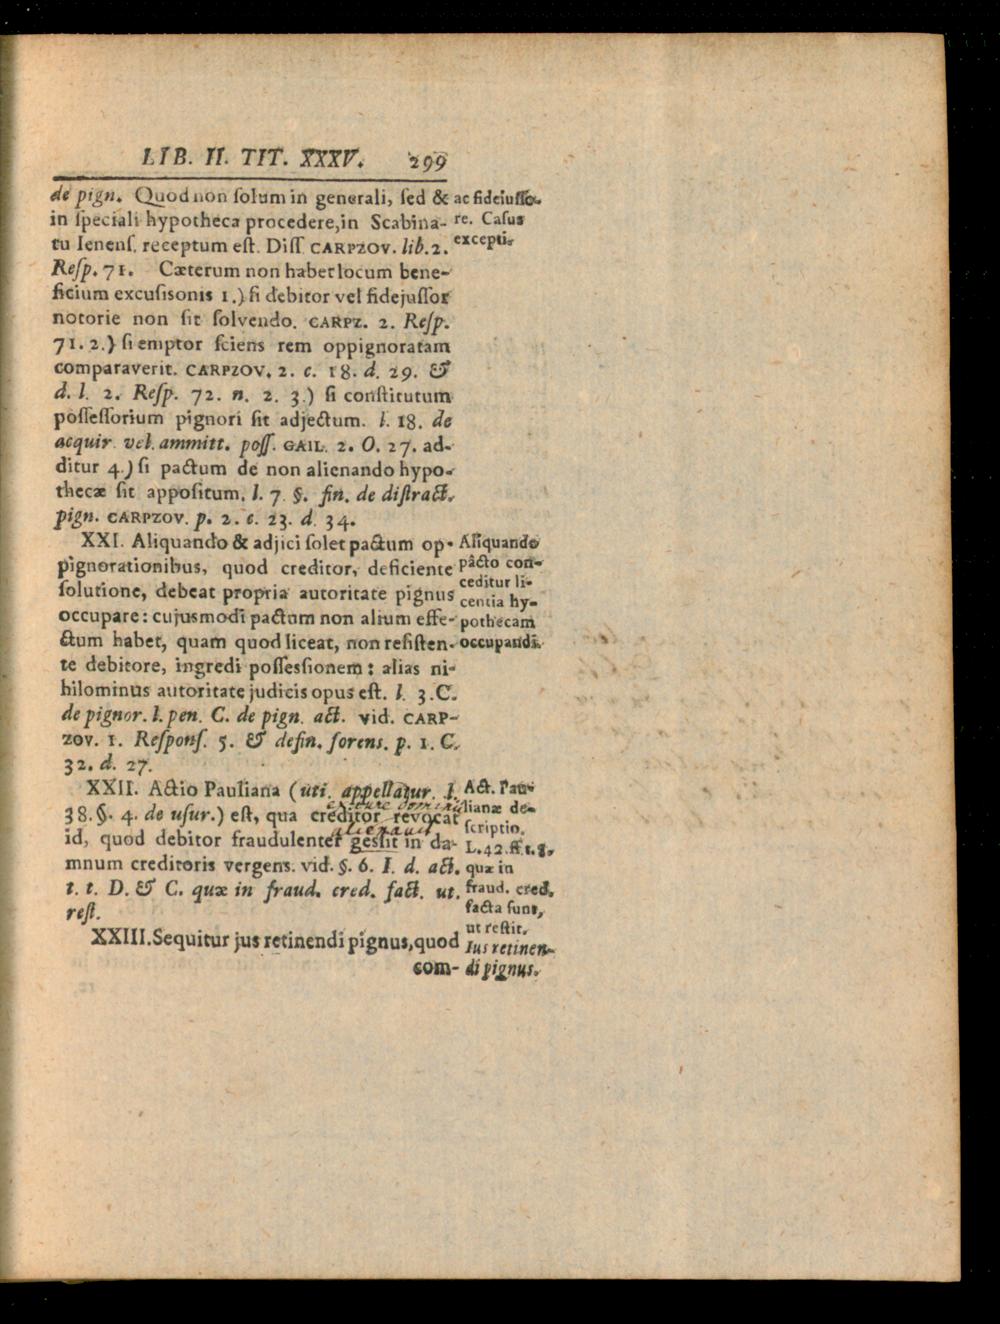 LIB. II. TIT. XXXV. 299
de pign. Quod non ſolum in generali, ſed &
in ſpeciali hypotheca procedere,in Scabina-
tu Ienenſ. receptum eſt. Diſſ. CARPZOV. lib. 2.
Reſp. 71. Cæterum non haber locum bene-
ficium excuſisonis 1.) ſi debitor vel fidejuſſor
notorie non ſit ſolvendo. CARPZ. 2. Reſp.
71. 2.) ſi emptor ſciens rem oppignoratam
comparaverit. CARPZOV. 2. c. 18. d. 29. &
d. l. 2. Reſp. 72. n. 2. 3.) ſi conſtitutum
poſſeſſorium pignori ſit adjectum. l. 18. de
acquir. vel. ammitt. poſſ. GAIL. 2. O. 27. ad-
ditur 4.) ſi pactum de non alienando hypo-
thecæ ſit appoſitum. l. 7. §. fin. de diſtract.
pign. CARPZOV. p. 2. c. 23. d. 34.
XXI. Aliquando & adjici ſolet pactum op-
pignorationibus, quod creditor, deficiente
ſolutione, debeat propria autoritate pignus
occupare: cujusmodi pactum non alium effe-
ctum habet, quam quod liceat, non reſiſten-
te debitore, ingredi poſſesſionem: alias ni-
hilominus autoritate judicis opus eſt. l. 3. C.
de pignor. l. pen. C. de pign. act. vid. CARP-
ZOV. 1. Reſponſ. 5. & defin. forens. p. 1. C.
32. d. 27.
XXII. Actio Pauliana (uti. appellatur. l.
38. §. 4. de uſur.) eſt, qua creditor revocat
id, quod debitor fraudulenter gesſit in da-
mnum creditoris vergens. vid. §. 6. I. d. act.
t. t. D. & C. quæ in fraud. cred. fact. ut.
reſt.
XXIII. Sequitur jus retinendi pignus, quod
com-
ac fideiuſſo-
re. Caſus
excepti.
Aliquando
pacto con-
ceditur li-
centia hy-
pothecam
occupandi.
Act. Pau-
lianæ de-
ſcriptio.
L. 42. ff. t. 8.
quæ in
fraud. cred.
facta ſunt,
ut reſtit.
Ius retinen-
di pignus.